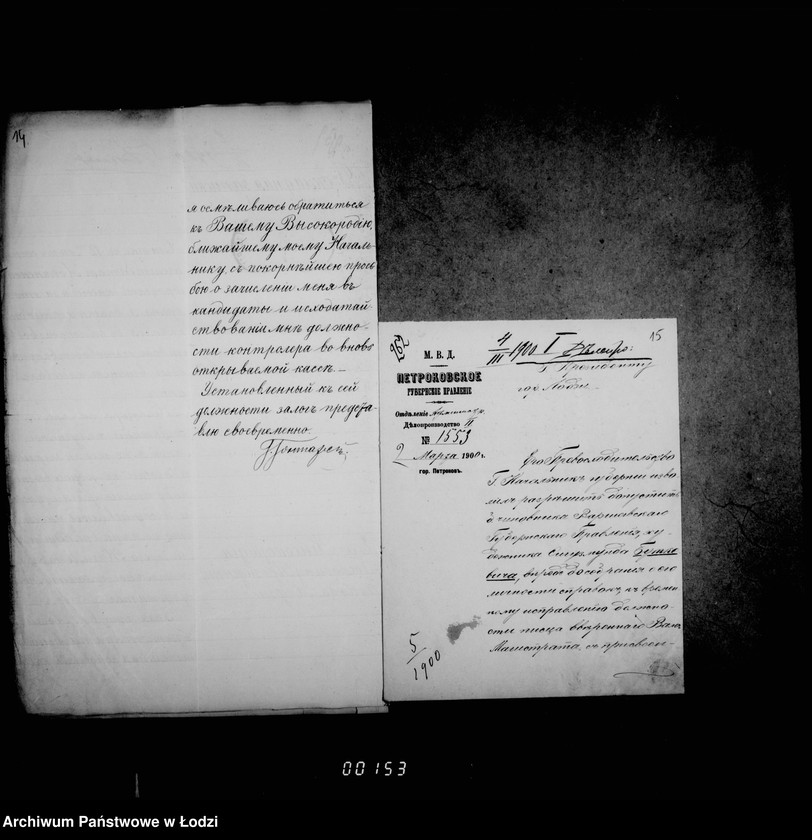 14
я осмѣливаюсь обратиться
къ Вашему Высокородію,
ближайшему моему Началь-
нику, съ покорнѣйшею прось-
бою о зачисленіи меня въ
кандидаты и исходатай-
ствованіи мнѣ должно-
сти контролера во вновь
открываемой кассѣ.
Установленный къ сей
должности залогъ предста-
влю своевременно.
15
262
4/III 1900 I
М. В. Д.
ПЕТРОКОВСКОЕ
ГУБЕРНСКОЕ ПРАВЛЕНІЕ
Отдѣленіе
Дѣлопроизводство II
№ 1553
2 Марта 1900 г.
гор. Петроковъ.
Г. Президенту
гор. Лодзи.
Его Превосходительство
Г. Начальникъ губерніи изво-
лилъ разрѣшить допустить
чиновника Варшавскаго
Губернскаго Правленія, ху-
дожника Сигизмунда
вича, впредь до собранія о его
личности справокъ, къ времен-
ному исправленію должно-
сти писца ввѣреннаго Вамъ
Магистрата, съ присвоен-
5/1900
00153
Archiwum Państwowe w Łodzi